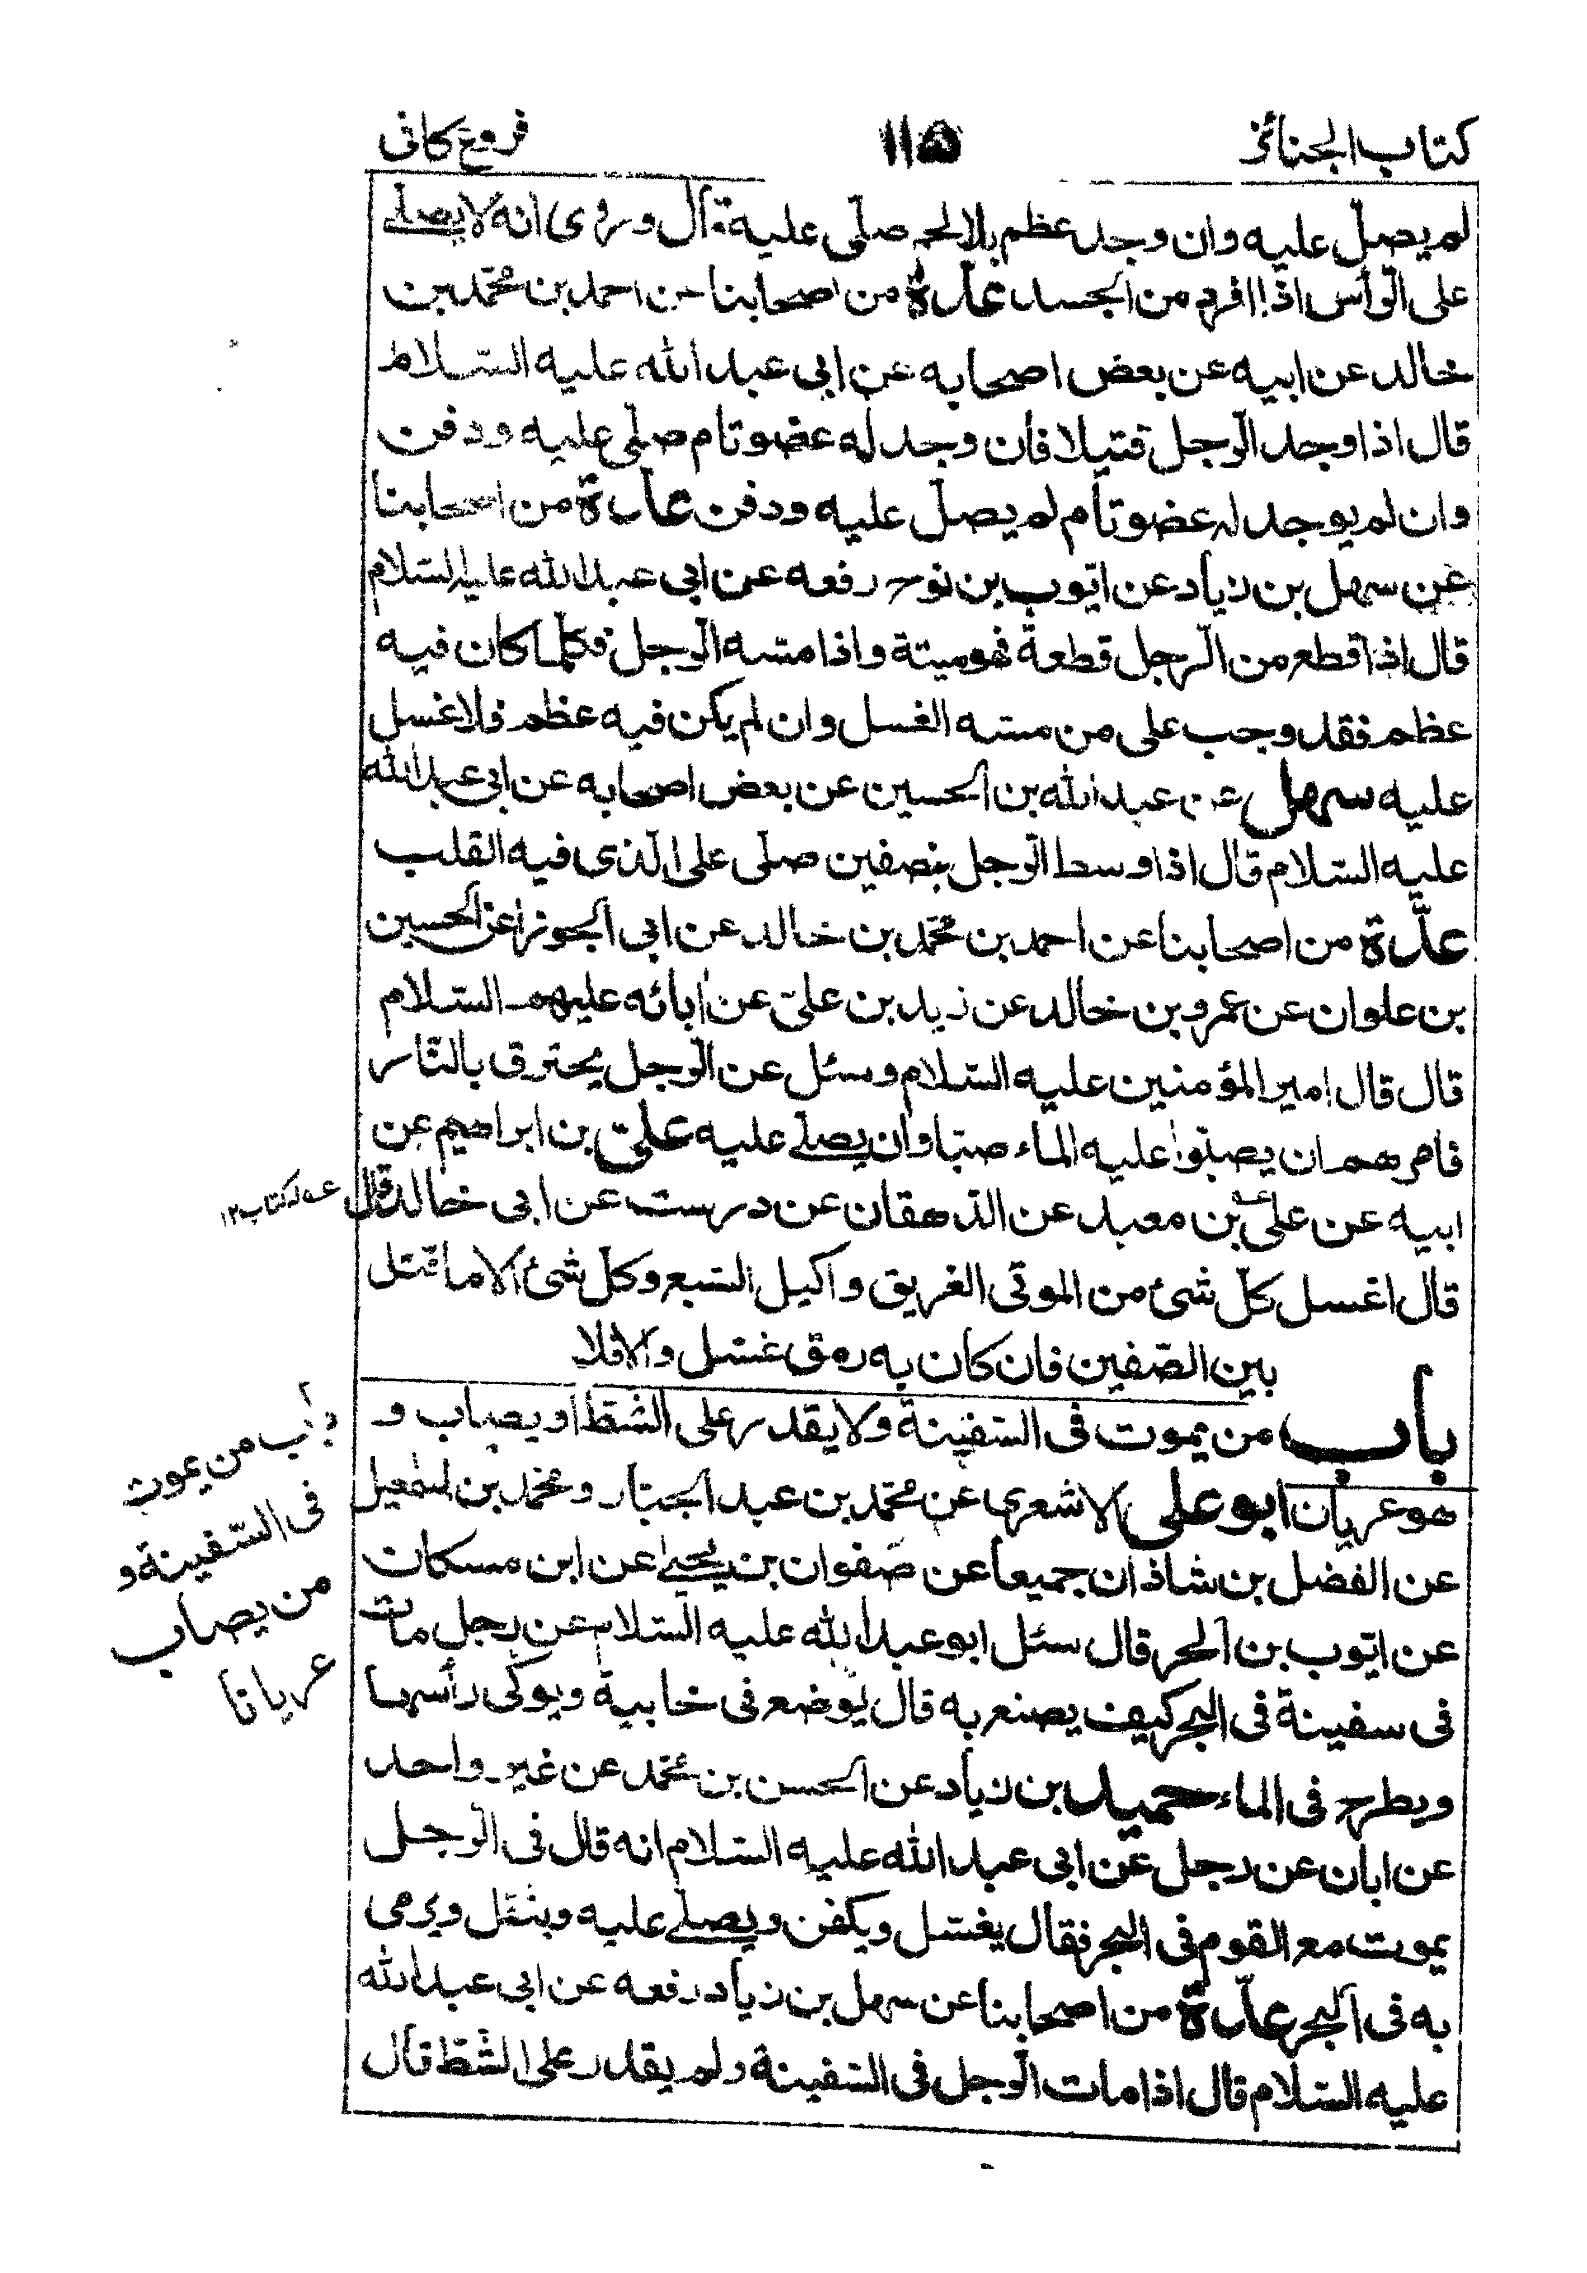 كتاب الجنائز
١١٥
فروع كافى
لم يصل عليه وان وجد عظم بلا لحم صلّى عليه قال وروى انه لا يصلى
على الرّأس اذا افرد من الجسد عدّة من اصحابنا عن احمد بن محمّد بن
خالد عن ابيه عن بعض اصحابه عن ابى عبد الله عليه السّلام
قال اذا وجد الرّجل قتيلا فان وجد له عضو تام صلى عليه ودفن
وان لم يوجد له عضو تام لم يصل عليه ودفن عدة من اصحابنا
عن سهل بن زياد عن ايّوب بن نوح رفعه عن ابى عبد الله عليه السّلام
قال اذا قطع من الرجل قطعة فهو ميتة واذا مسّه الرّجل فكلّما كان فيه
عظم فقد وجب على من مسّه الغسل وان لم يكن فيه عظم فلا غسل
عليه سهل عن عبد الله بن الحسين عن بعض اصحابه عن ابى عبد الله
عليه السّلام قال اذا وسط الرّجل بنصفين صلّى على الّذى فيه القلب
عدّة من اصحابنا عن احمد بن محمّد بن خالد عن ابى الجوزا عن الحسين
بن علوان عن عمرو بن خالد عن زيد بن علىّ عن ابائه عليهم السّلام
قال قال امير المؤمنين عليه السّلام وسئل عن الرّجل يحترق بالنّار
فامرهم ان يصبّوا عليه الماء صبّا وان يصلى عليه علىّ بن ابراهيم عن
ابيه عن على بن معبد عن الدّهقان عن درست عن ابى خالد قال
قال اغسل كلّ شئ من الموتى الغريق واكيل السّبع وكلّ شئ الا ما قتل
بين الصّفين فان كان به رمق غسّل والا فلا
باب من يموت فى السّفينة ولا يقدر على الشّطّ او يصاب و
هو عريان ابو على الاشعرى عن محمّد بن عبد الجبّار ومحمّد بن اسمعيل
عن الفضل بن شاذان جميعا عن صفوان بن يحيى عن ابن مسكان
عن ايّوب بن الحر قال سئل ابو عبد الله عليه السّلام عن رجل مات
فى سفينة فى البحر كيف يصنع به قال يوضع فى خابية ويوكى رأسها
ويطرح فى الماء حميد بن زياد عن الحسن بن محمّد عن غير واحد
عن ابان عن رجل عن ابى عبد الله عليه السّلام انه قال فى الرّجل
يموت مع القوم فى البحر فقال يغسّل ويكفن ويصلى عليه ويثقّل ويرمى
به فى البحر عدّة من اصحابنا عن سهل بن زياد رفعه عن ابى عبد الله
عليه السّلام قال اذا مات الرّجل فى السّفينة ولم يقدر على الشّطّ قال
باب من يموت
فى السّفينة و
من يصاب
عريانا